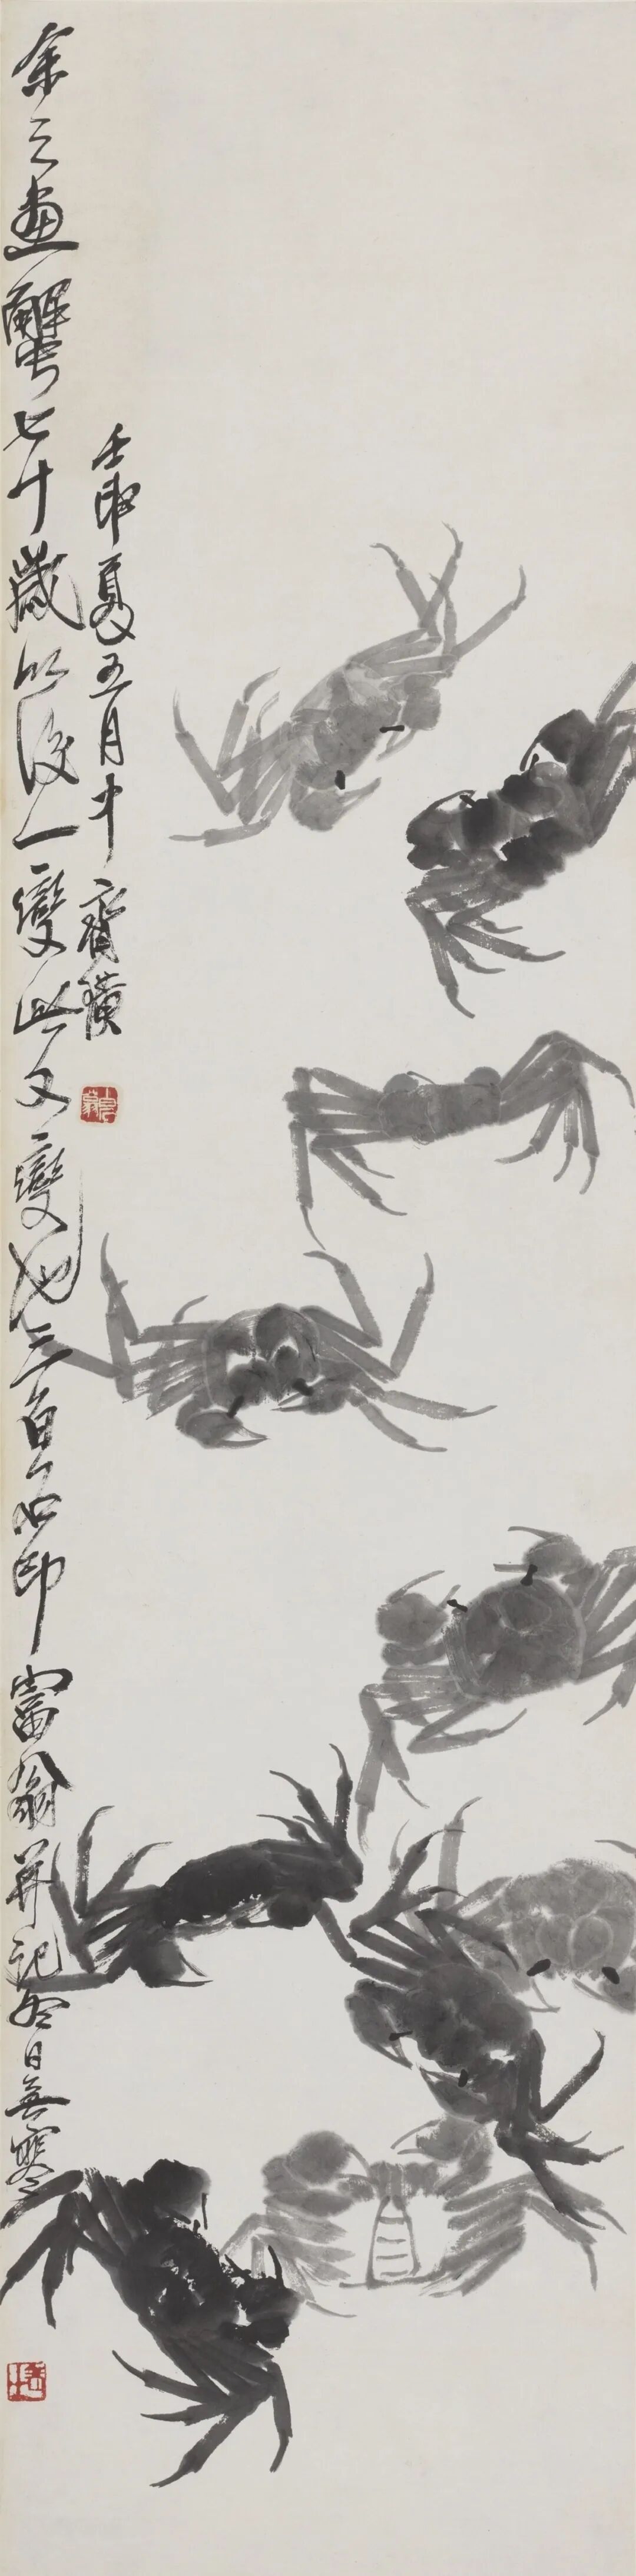 余之畫蟹七十歲以後一變此又變也三百石印富翁并記今日無寒
壬申夏五月中齊璜